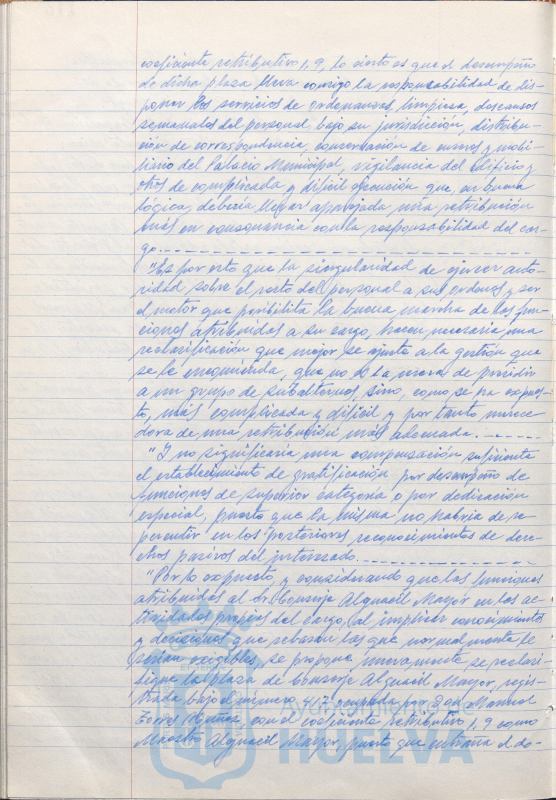 coeficiente retributivo 1,9, lo cierto es que el desempeño
de dicha plaza lleva consigo la responsabilidad de dis-
poner los servicios de ordenanzas, limpieza, descansos
semanales del personal bajo su jurisdicción, distribu-
ción de correspondencia, conservación de enseres y mobi-
liario del Palacio Municipal, vigilancia del edificio y
otros de complicada y difícil ejecución que, en buena
lógica, debería llevar aparejada una retribución
más en consonancia con la responsabilidad del car-
go.
"Es por esto que la singularidad de ejercer auto-
ridad sobre el resto del personal a sus órdenes y ser
el motor que posibilita la buena marcha de las fun-
ciones atribuidas a su cargo, hacen necesaria una
reclasificación que mejor se ajuste a la gestión que
se le encomienda, que no es la mera de presidir
a un grupo de subalternos, sino, como se ha expues-
to, más complicada y difícil y por tanto merece-
dora de una retribución más adecuada.
"Y no significaría una compensación suficiente
el establecimiento de gratificación por desempeño de
funciones de superior categoría o por dedicación
especial, puesto que la misma no habría de re-
percutir en los posteriores reconocimientos de dere-
chos pasivos del interesado.
"Por lo expuesto, y considerando que las funciones
atribuidas al Sr. Conserje Alguacil Mayor en las ac-
tividades propias del cargo, al implicar conocimientos
y decisiones que rebasan las que normalmente le
serían exigibles se propone nuevamente se reclasi-
fique la plaza de Conserje Alguacil Mayor, regis-
trada bajo el número ocupada por Don Manuel
Torres con el coeficiente retributivo 1,9 como
Maestro Alguacil Mayor, puesto que entraña el de-
HUELVA